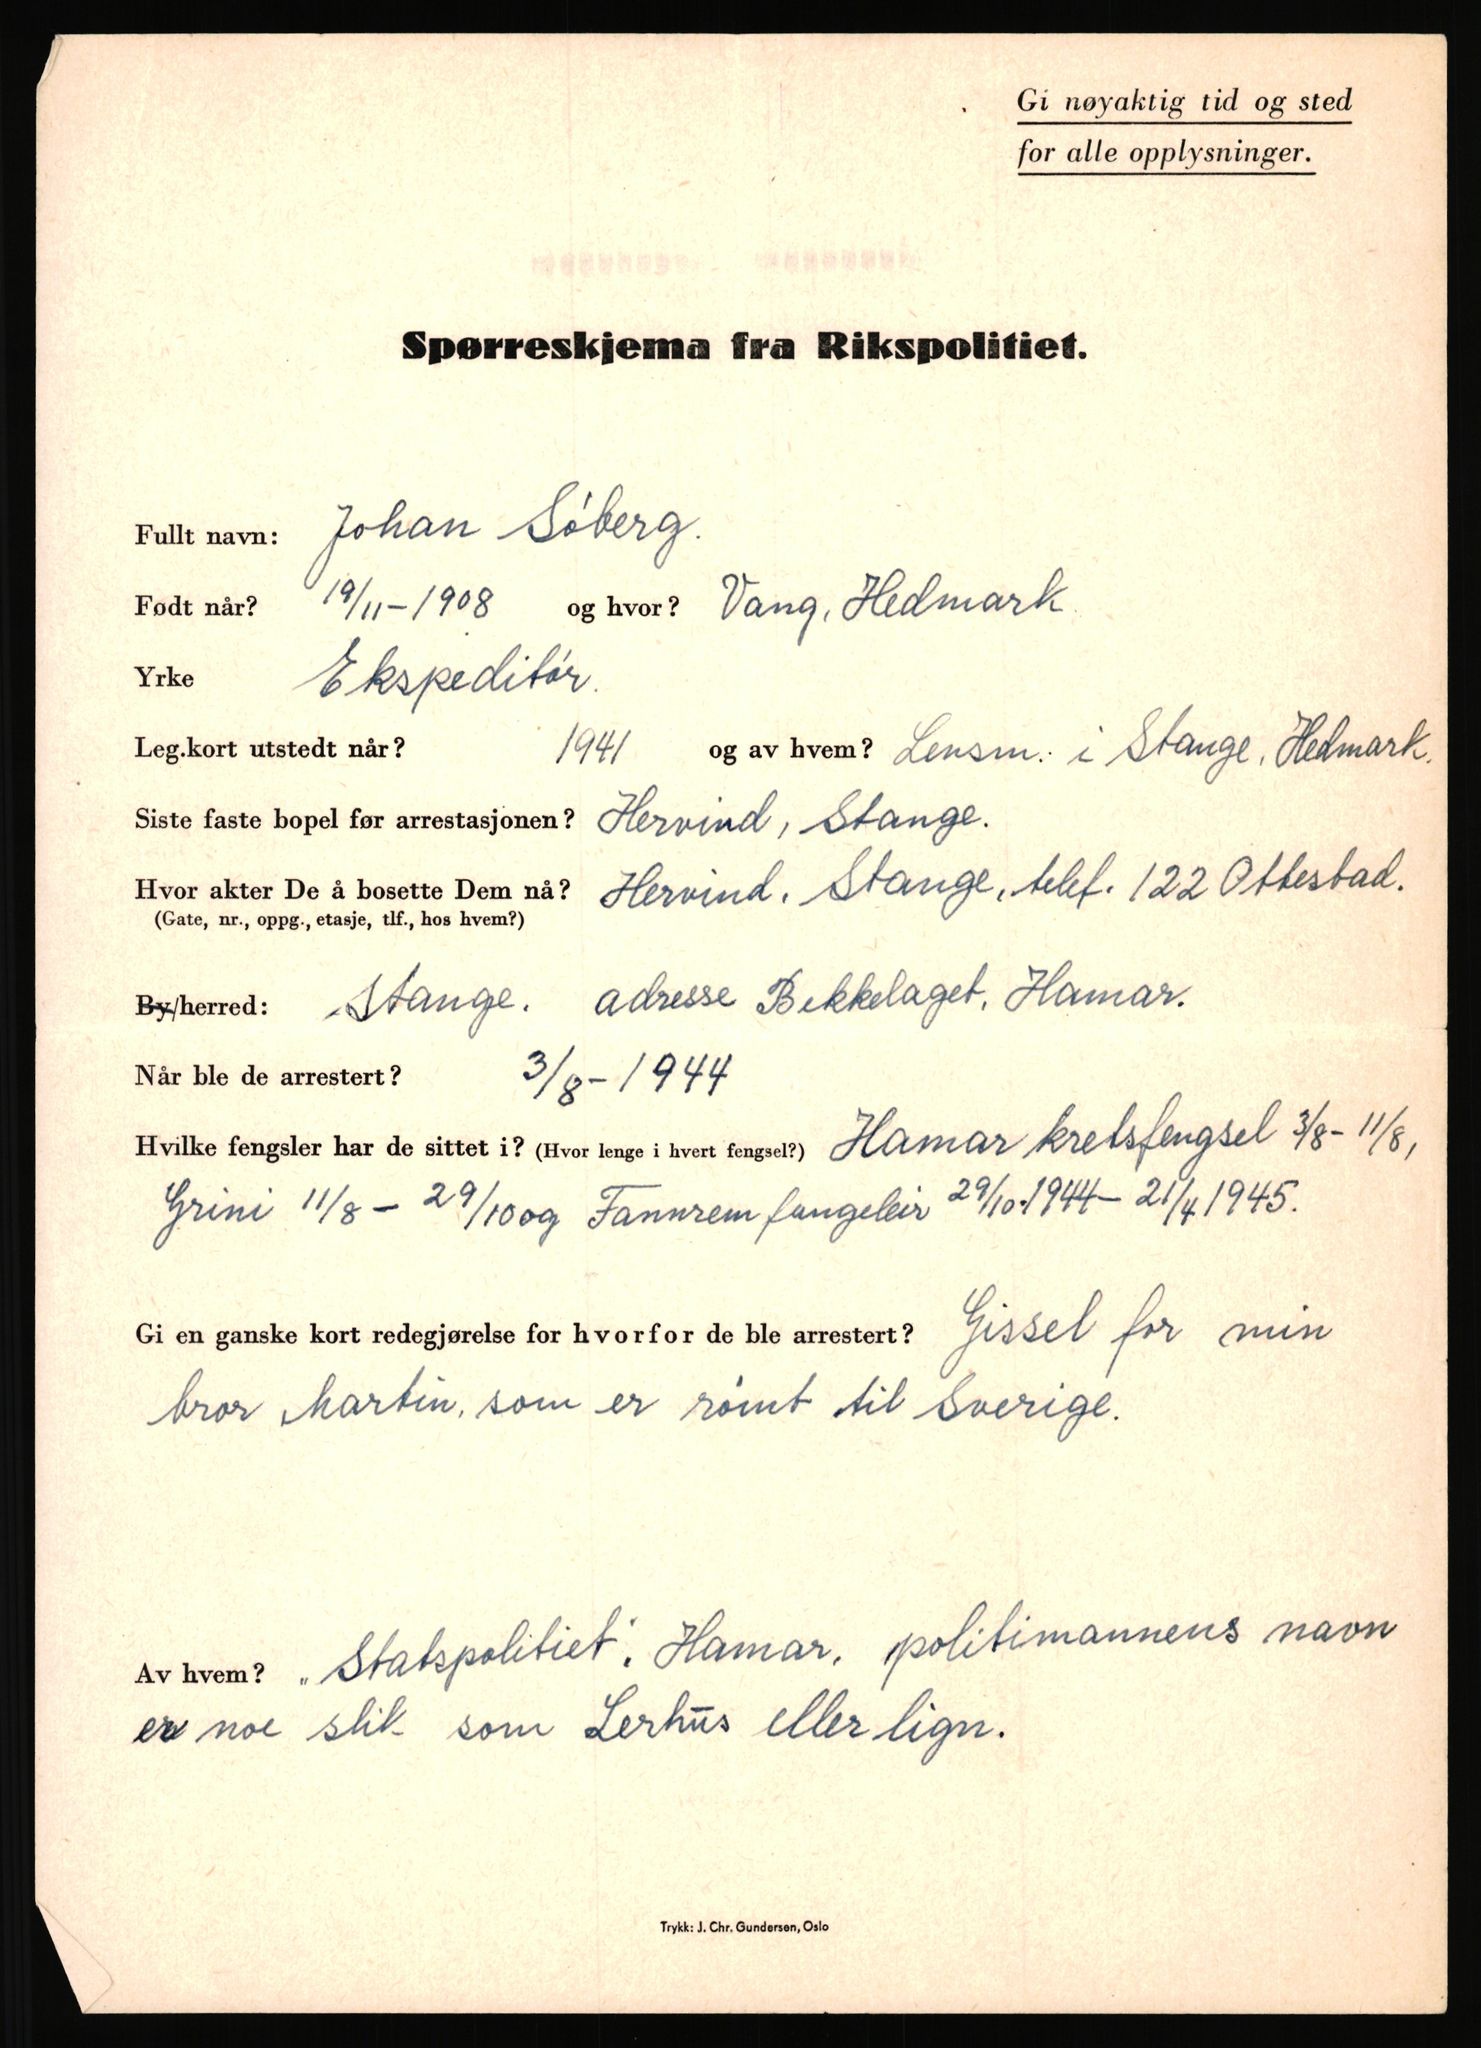 Gi nøyaktig tid og sted
for alle opplysninger.
Spørreskjema fra Rikspolitiet.
Fullt navn: Johan Søberg.
Født når? 19/11-1908 og hvor? Vang, Hedmark.
Yrke Ekspeditør.
Leg.kort utstedt når? 1941 og av hvem? Lensm. i Stange, Hedmark.
Siste faste bopel før arrestasjonen? Hervind, Stange.
Hvor akter De å bosette Dem nå? Hervind, Stange, telef. 122 Ottestad.
(Gate, nr., oppg., etasje, tlf., hos hvem?)
By/herred: Stange. adresse Bekkelaget, Hamar.
Når ble de arrestert? 3/8-1944
Hvilke fengsler har de sittet i? (Hvor lenge i hvert fengsel?) Hamar kretsfengsel 3/8-11/8,
Grini 11/8-29/10 og Fannrem fangeleir 29/10.1944-21/4 1945.
Gi en ganske kort redegjørelse for hvorfor de ble arrestert? Gissel for min
bror Martin, som er rømt til Sverige.
Av hvem? "Statspolitiet", Hamar, politimannens navn
er noe slik som Lerhus eller lign.
Trykk: J. Chr. Gundersen, Oslo